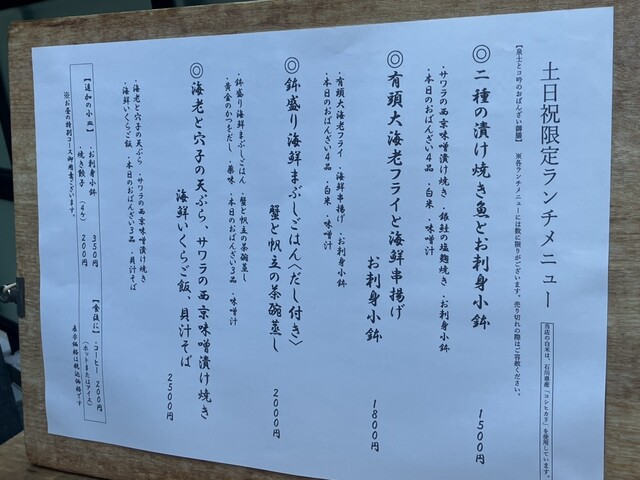 土日祝限定ランチメニュー
当店の白米は、石川県産「コシヒカリ」を使用しています。
※各ランチメニューには数に限りがございます。売り切れの際はご容赦ください。
◎二種の漬け焼き魚とお刺身小鉢
1500円
・サワラの西京味噌漬け焼き・銀鮭の塩麹焼き・お刺身小鉢
・本日のおばんざい4品・白米・味噌汁
◎有頭大海老フライと海鮮串揚げ
お刺身小鉢
1800円
・有頭大海老フライ・海鮮串揚げ・お刺身小鉢
・本日のおばんざい4品・白米・味噌汁
◎鉢盛り海鮮まぶしごはん〈だし付き〉
蟹と帆立の茶碗蒸し
2000円
・鉢盛り海鮮まぶしごはん・蟹と帆立の茶碗蒸し
・黄金のかつをだし・薬味・本日のおばんざい3品・味噌汁
◎海老と穴子の天ぷら、サワラの西京味噌漬け焼き
海鮮いくらご飯、貝汁そば
2500円
・海老と穴子の天ぷら・サワラの西京味噌漬け焼き
・海鮮いくらご飯・本日のおばんざい3品・貝汁そば
【追加の小皿】
・お刺身小鉢 350円
・焼き餃子（4ケ） 200円
【食後に】
・コーヒー 200円
（ホットまたはアイス）
※お昼の特別コース御用意ございます。
表示価格は税込価格です